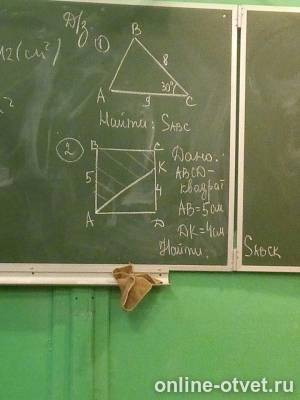 Д/з
12 (см²)
①
B
8
30°
A
9
C
Найти: SABC
②
B
C
K
5
4
A
D
Дано:
ABCD-
квадрат
AB=5см
DK=4см
Найти:
SABCK
online-otvet.ru